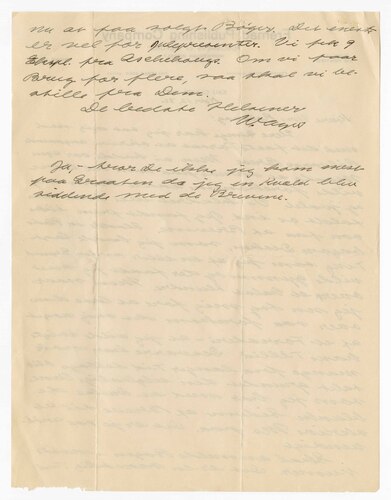 nu at faa solgt Bøger. Det meste
er vel for Julepresenter. Vi fik 9
Expl. fra Aschehoug. Om vi faar
Brug for flere, saa skal vi be-
stille fra Dem.
De bedste Hilsener
W. Ager
Ja - tror De ikke jeg kom mest
paa Graaten da jeg en Kvæld blev
siddende med de Brevene.